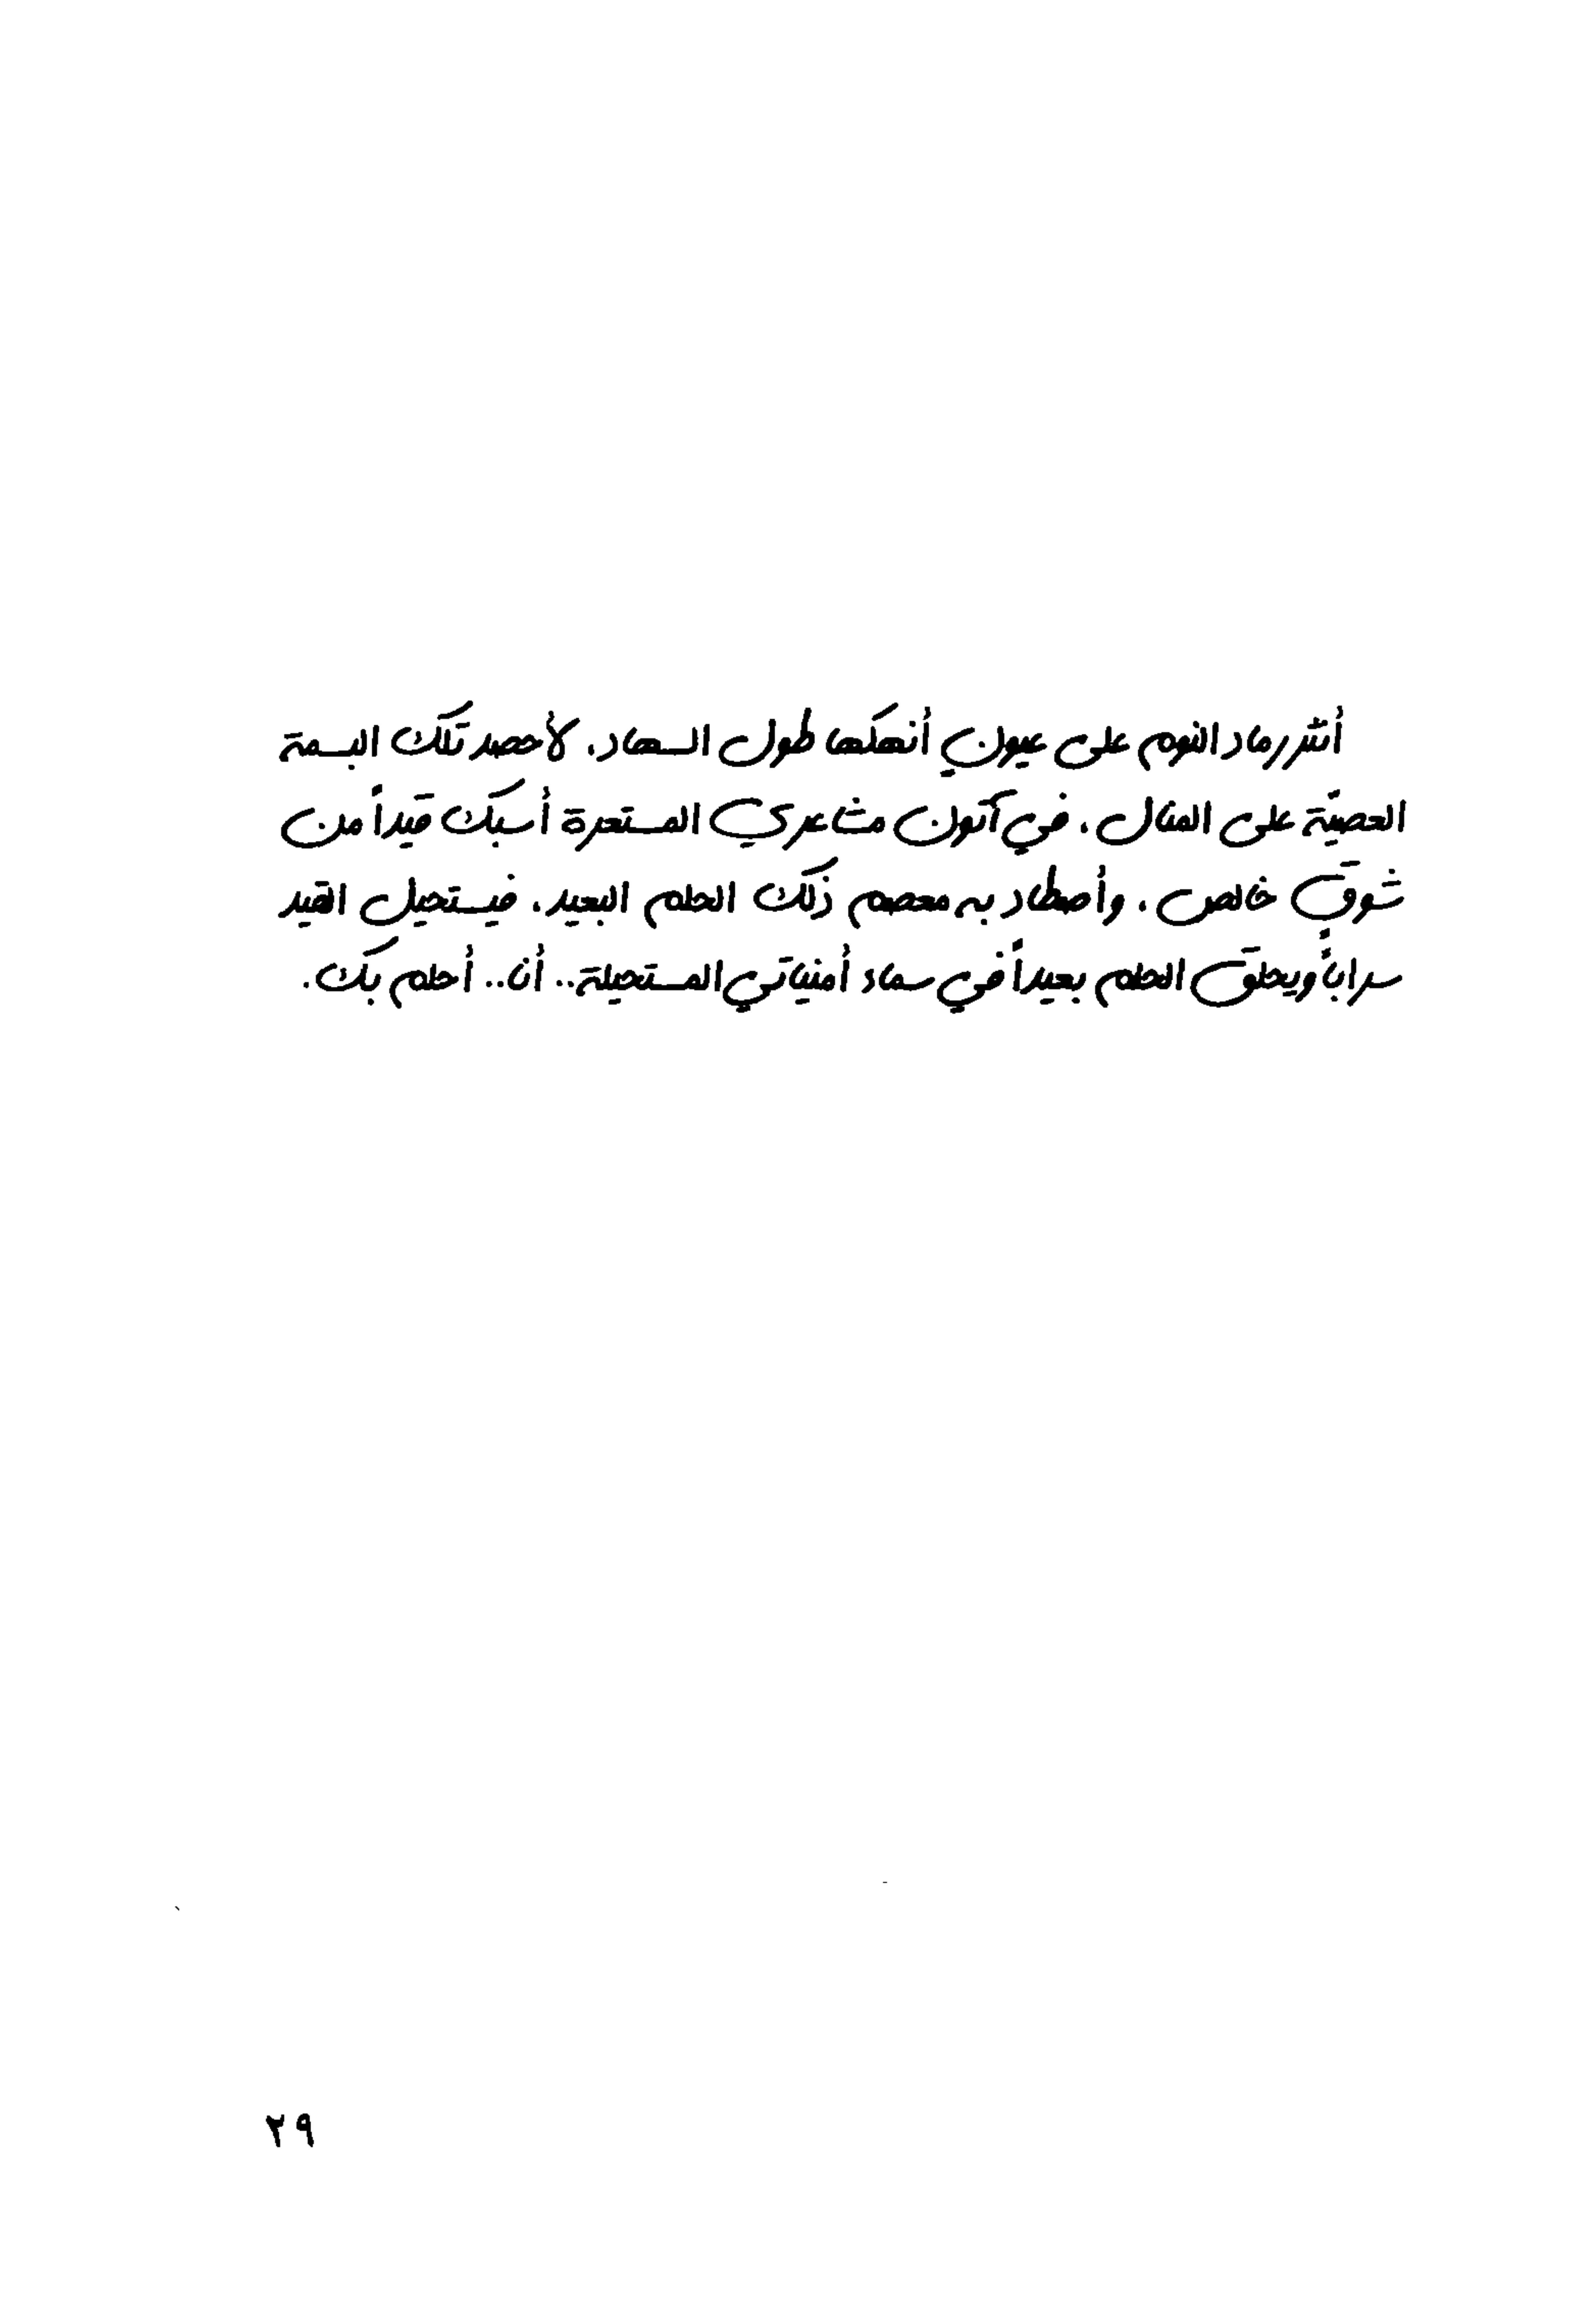 أنثر رماد النوم على عيونٍ أنهكها طول السهاد، لأحصد تلك البسمة
العصيّة على المنال، في آتون مشاعري المستعرة أسبك قيداً من
شوقٍ خالص، وأصطاد به معصم ذلك الحلم البعيد، فيستحيل القيد
سراباً ويحلق الحلم بعيداً في سماء أمنياتي المستحيلة.. أنا.. أحلم بك.
٢٩